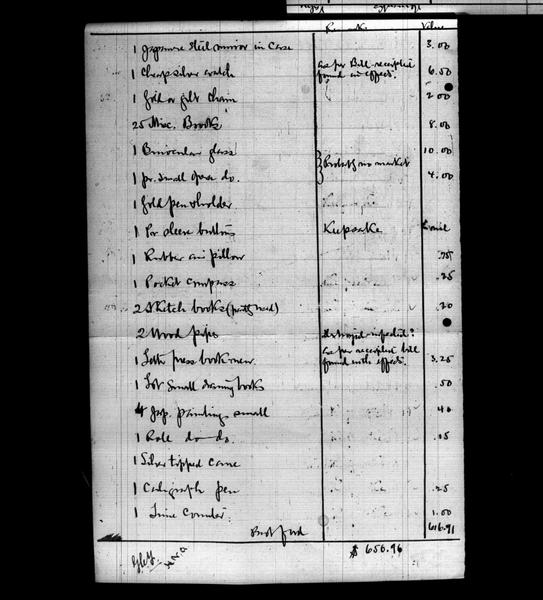 Remarks Value
1 Japanese steel mirror in Case 3.00
1 Cheap silver watch as per Bill receipted found in effects. 6.50
1 Gold or gilt Chain 2.00
25 Misc. Books 8.00
1 Binocular glass 10.00
1 pr. small Opera do. Probably no market 4.00
1 Gold pen & holder
1 Pr sleeve buttons Keepsake
1 Rubber air pillow .75
1 Pocket compass .25
2 Sketch books (partly used) .20
2 Wood pipes
1 press book new. as per receipted bill found with effects. 3.25
1 Lot Small drawing books .50
4 Jap. paintings small 40
1 Role do do .15
1 Silver tipped cane
1 Caligraph pen .25
1 Time Counter. 1.00
616.91
$ 656.96